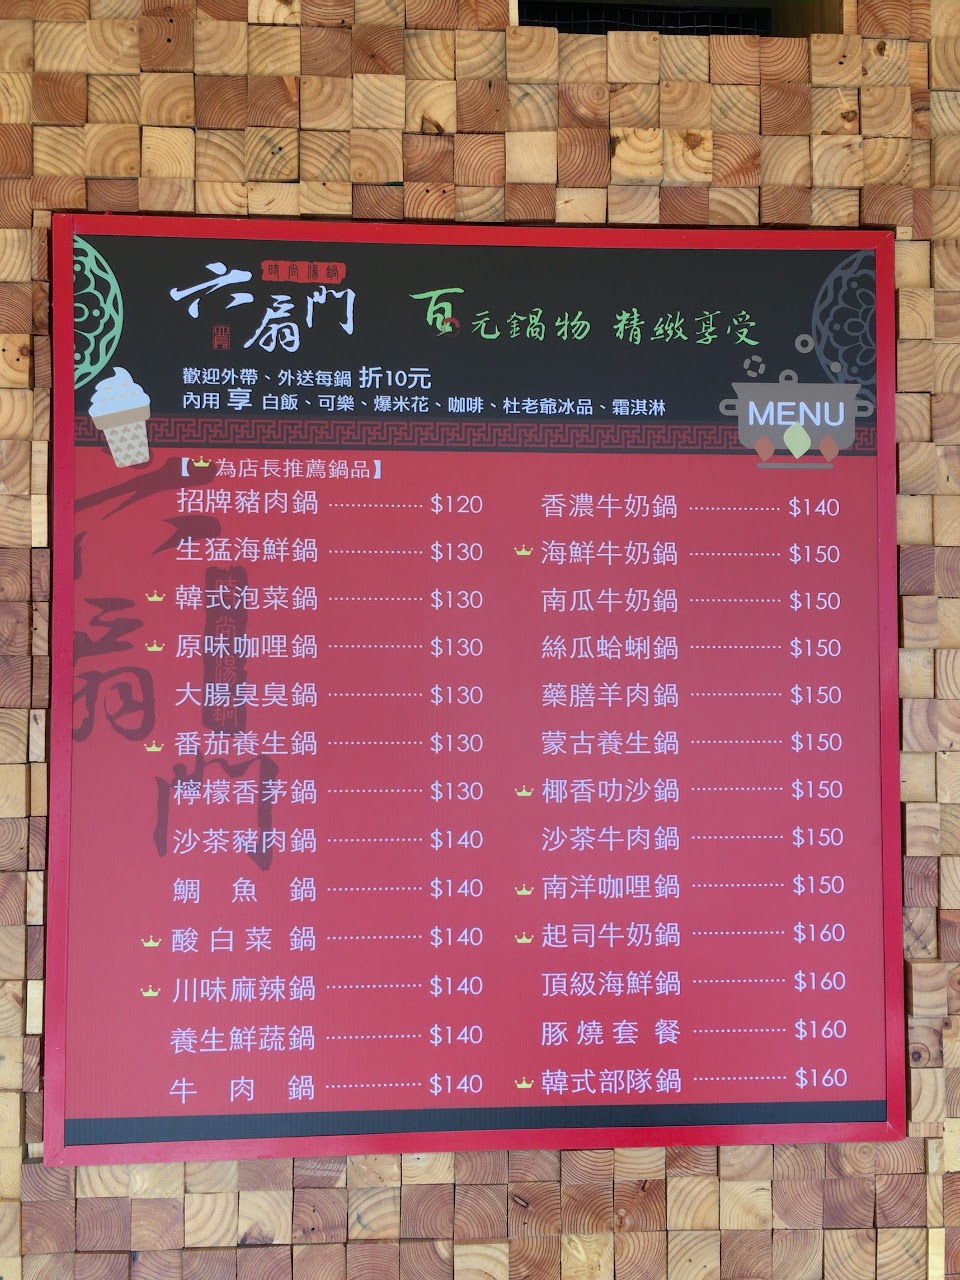 時尚湯鍋
六扇門
百元鍋物 精緻享受
歡迎外帶、外送每鍋 折10元
內用 享 白飯、可樂、爆米花、咖啡、杜老爺冰品、霜淇淋
MENU
【為店長推薦鍋品】
招牌豬肉鍋 ················· $120
生猛海鮮鍋 ················· $130
韓式泡菜鍋 ················· $130
原味咖哩鍋 ················· $130
大腸臭臭鍋 ················· $130
番茄養生鍋 ················· $130
檸檬香茅鍋 ················· $130
沙茶豬肉鍋 ················· $140
鯛魚鍋 ················· $140
酸白菜鍋 ················· $140
川味麻辣鍋 ················· $140
養生鮮蔬鍋 ················· $140
牛肉鍋 ················· $140
香濃牛奶鍋 ················· $140
海鮮牛奶鍋 ················· $150
南瓜牛奶鍋 ················· $150
絲瓜蛤蜊鍋 ················· $150
藥膳羊肉鍋 ················· $150
蒙古養生鍋 ················· $150
椰香叻沙鍋 ················· $150
沙茶牛肉鍋 ················· $150
南洋咖哩鍋 ················· $150
起司牛奶鍋 ················· $160
頂級海鮮鍋 ················· $160
豚燒套餐 ················· $160
韓式部隊鍋 ················· $160
六扇門
時尚湯鍋